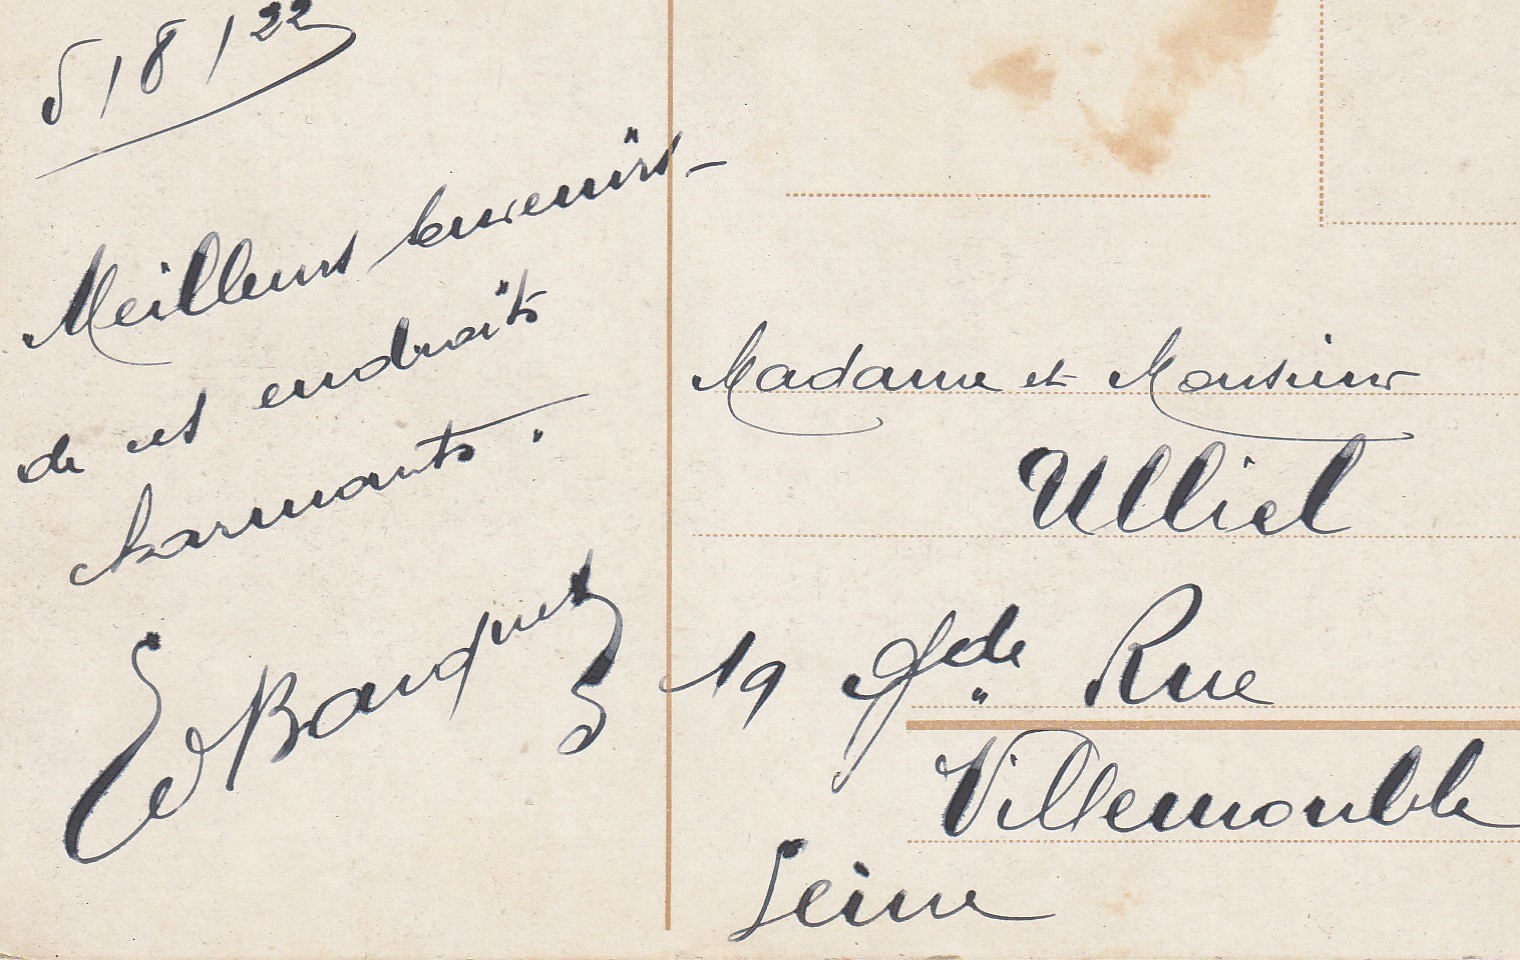 5/8/22
Meilleurs souvenirs -
de ces endroits
charmants.
Ed Bauquet
Madame et Monsieur
Ulliel
19 Gde Rue
Villemomble
Seine